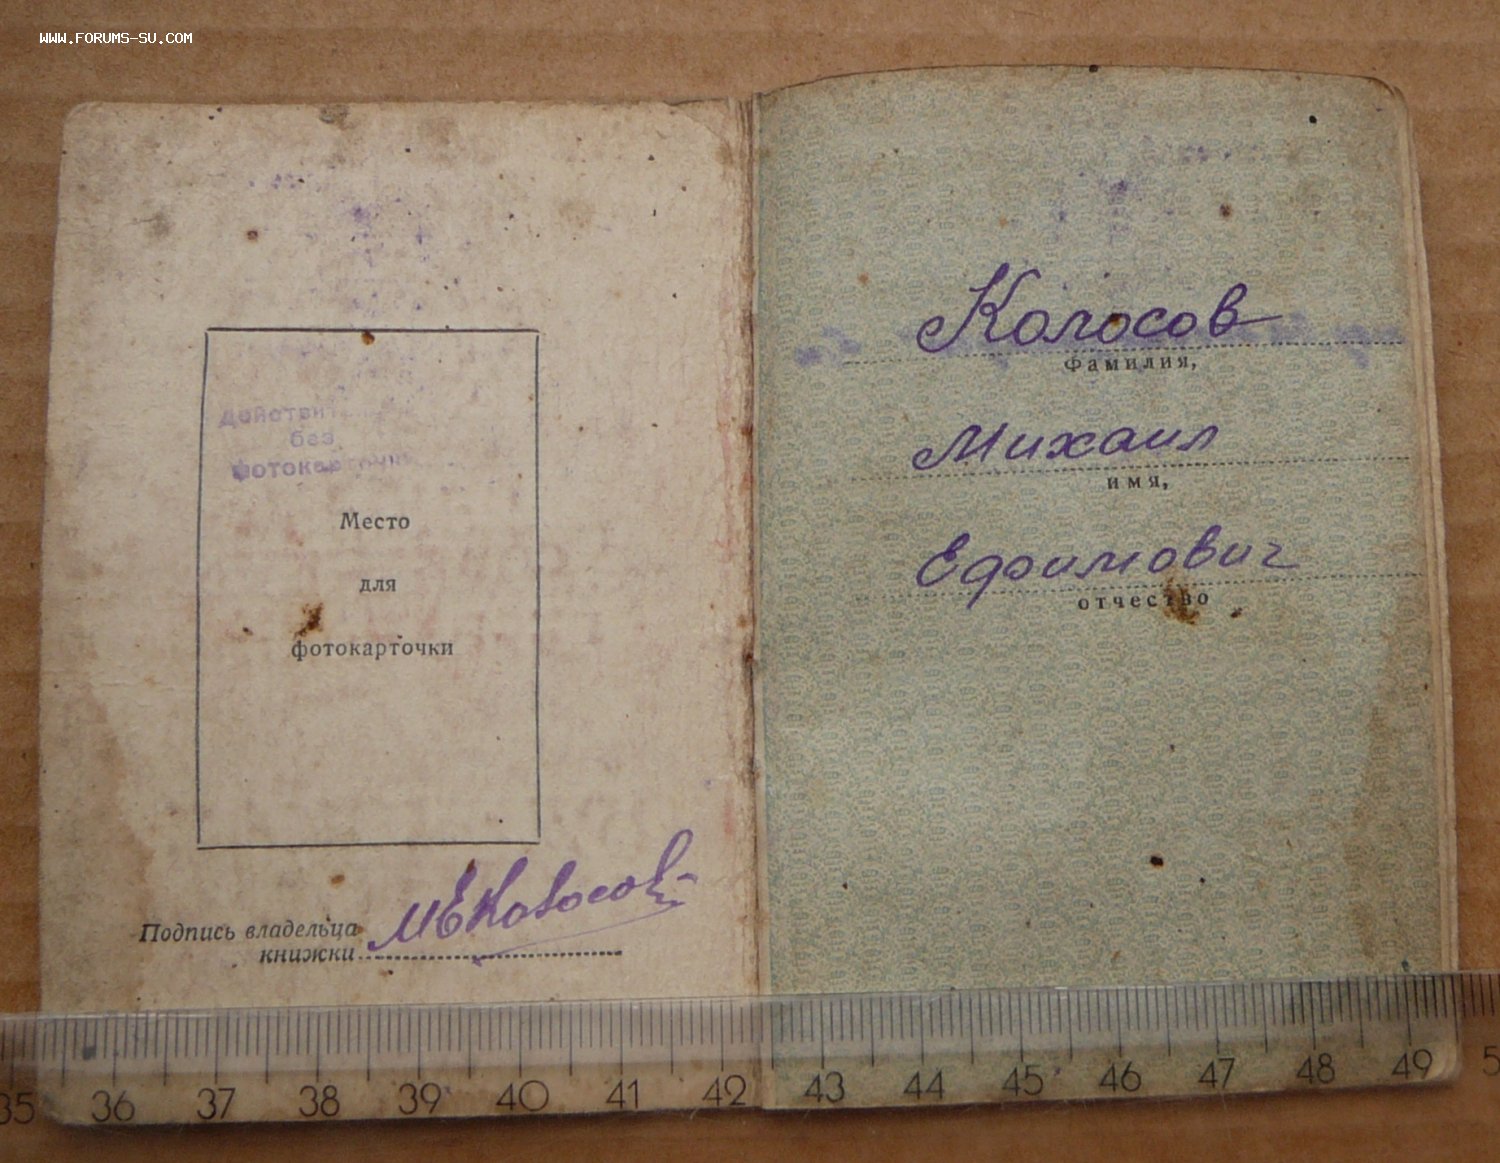 WWW.FORUMS-SU.COM
Действит
без
фотокарточки
Место
для
фотокарточки
Подпись владельца
книжки
МЕКолосов
Колосов
Фамилия,
Михаил
имя,
Ефимович
отчество
35 36 37 38 39 40 41 42 43 44 45 46 47 48 49 5